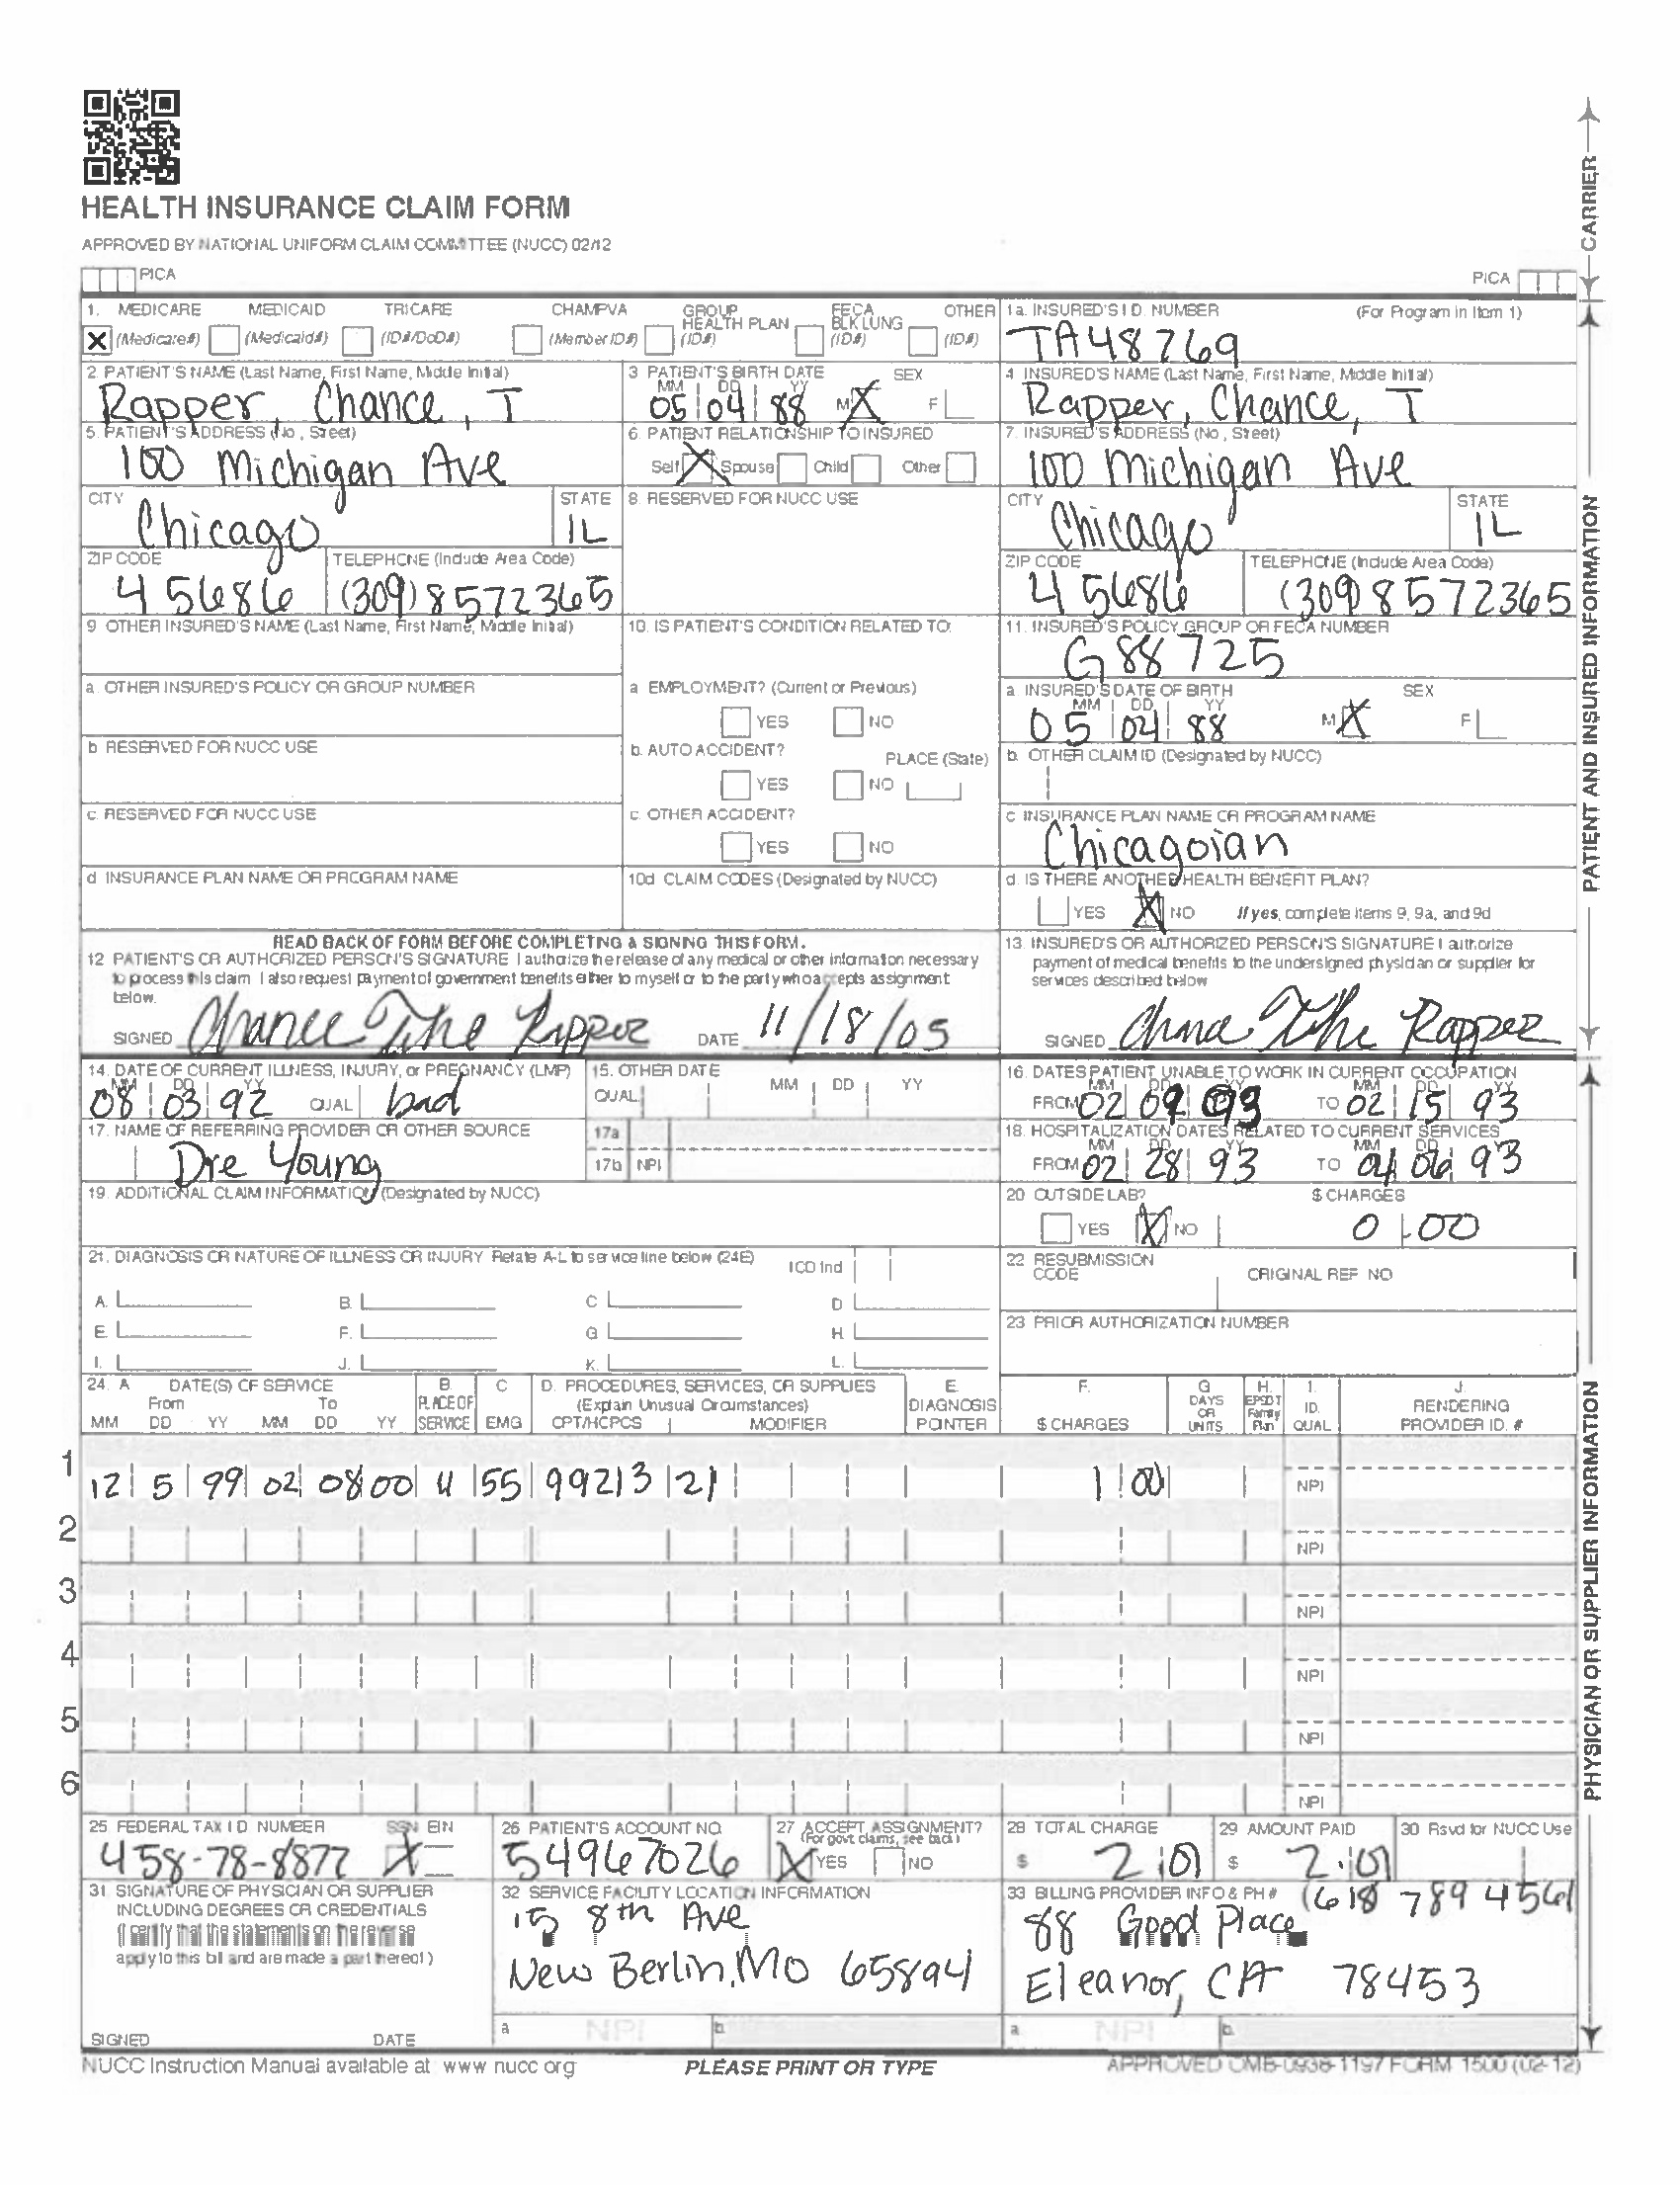 HEALTH INSURANCE CLAIM FORM
APPROVED BY NATIONAL UNIFORM CLAIM COMMITTEE (NUCC) 02/12
PICA
PICA
CARRIER
1. MEDICARE MEDICAID TRICARE CHAMPVA GROUP HEALTH PLAN FECA BLK LUNG OTHER
X (Medicare#) (Medicaid#) (ID#/DoD#) (Member ID#) (ID#) (ID#) (ID#)
1a. INSURED'S I.D. NUMBER (For Program in Item 1)
TA48769
2. PATIENT'S NAME (Last Name, First Name, Middle Initial)
Rapper, Chance, T
3. PATIENT'S BIRTH DATE SEX
MM DD YY
05 04 88 M X F
4. INSURED'S NAME (Last Name, First Name, Middle Initial)
Rapper, Chance, T
5. PATIENT'S ADDRESS (No., Street)
100 Michigan Ave
6. PATIENT RELATIONSHIP TO INSURED
Self X Spouse Child Other
7. INSURED'S ADDRESS (No., Street)
100 Michigan Ave
CITY STATE
Chicago IL
8. RESERVED FOR NUCC USE
CITY STATE
Chicago IL
ZIP CODE TELEPHONE (Include Area Code)
45686 (309) 8572365
ZIP CODE TELEPHONE (Include Area Code)
45686 (309) 8572365
9. OTHER INSURED'S NAME (Last Name, First Name, Middle Initial)
10. IS PATIENT'S CONDITION RELATED TO:
11. INSURED'S POLICY GROUP OR FECA NUMBER
G88725
a. OTHER INSURED'S POLICY OR GROUP NUMBER
a. EMPLOYMENT? (Current or Previous)
YES NO
a. INSURED'S DATE OF BIRTH SEX
MM DD YY
05 04 88 M X F
b. RESERVED FOR NUCC USE
b. AUTO ACCIDENT? PLACE (State)
YES NO
b. OTHER CLAIM ID (Designated by NUCC)
c. RESERVED FOR NUCC USE
c. OTHER ACCIDENT?
YES NO
c. INSURANCE PLAN NAME OR PROGRAM NAME
Chicagoian
d. INSURANCE PLAN NAME OR PROGRAM NAME
10d. CLAIM CODES (Designated by NUCC)
d. IS THERE ANOTHER HEALTH BENEFIT PLAN?
YES X NO If yes, complete items 9, 9a, and 9d
PATIENT AND INSURED INFORMATION
READ BACK OF FORM BEFORE COMPLETING & SIGNING THIS FORM.
12. PATIENT'S OR AUTHORIZED PERSON'S SIGNATURE I authorize the release of any medical or other information necessary
to process this claim. I also request payment of government benefits either to myself or to the party who accepts assignment
below.
SIGNED Chance The Rapper DATE 11/18/05
13. INSURED'S OR AUTHORIZED PERSON'S SIGNATURE I authorize
payment of medical benefits to the undersigned physician or supplier for
services described below
SIGNED The Rapper
14. DATE OF CURRENT ILLNESS, INJURY, or PREGNANCY (LMP)
MM DD YY
08 03 92 QUAL bad
15. OTHER DATE
QUAL MM DD YY
16. DATES PATIENT UNABLE TO WORK IN CURRENT OCCUPATION
MM DD YY MM DD YY
FROM 02 09 93 TO 02 15 93
17. NAME OF REFERRING PROVIDER OR OTHER SOURCE
Dre Young
17a
17b NPI
18. HOSPITALIZATION DATES RELATED TO CURRENT SERVICES
MM DD YY MM DD YY
FROM 02 28 93 TO 04 06 93
19. ADDITIONAL CLAIM INFORMATION (Designated by NUCC)
20. OUTSIDE LAB? $ CHARGES
YES X NO 0 00
21. DIAGNOSIS OR NATURE OF ILLNESS OR INJURY Relate A-L to service line below (24E) ICD Ind
A. B. C. D.
E. F. G. H.
I. J. K. L.
22. RESUBMISSION CODE ORIGINAL REF. NO.
23. PRIOR AUTHORIZATION NUMBER
24. A. DATE(S) OF SERVICE B. C. D. PROCEDURES, SERVICES, OR SUPPLIES E. F. G. H. I. J.
From To PLACE OF (Explain Unusual Circumstances) DIAGNOSIS DAYS OR UNITS EPSDT Family Plan ID. RENDERING
MM DD YY MM DD YY SERVICE EMG CPT/HCPCS MODIFIER POINTER $ CHARGES QUAL PROVIDER ID. #
1 12 5 99 02 08 00 4 55 99213 21 1 00 NPI
2 NPI
3 NPI
4 NPI
5 NPI
6 NPI
PHYSICIAN OR SUPPLIER INFORMATION
25. FEDERAL TAX I.D. NUMBER SSN EIN
458-78-8877 X
26. PATIENT'S ACCOUNT NO.
54967026
27. ACCEPT ASSIGNMENT?
(For govt. claims, see back)
X YES NO
28. TOTAL CHARGE
$ 2 01
29. AMOUNT PAID
$ 2.01
30. Rsvd for NUCC Use
31. SIGNATURE OF PHYSICIAN OR SUPPLIER
INCLUDING DEGREES OR CREDENTIALS
(I certify that the statements on the reverse
apply to this bill and are made a part thereof.)
SIGNED DATE
32. SERVICE FACILITY LOCATION INFORMATION
15 8th Ave
New Berlin, MO 65894
a. NPI b.
33. BILLING PROVIDER INFO & PH # (618 789 4561
88 Good Place
Eleanor, CA 78453
a. NPI b.
NUCC Instruction Manual available at: www.nucc.org
PLEASE PRINT OR TYPE
APPROVED OMB-0938-1197 FORM 1500 (02-12)